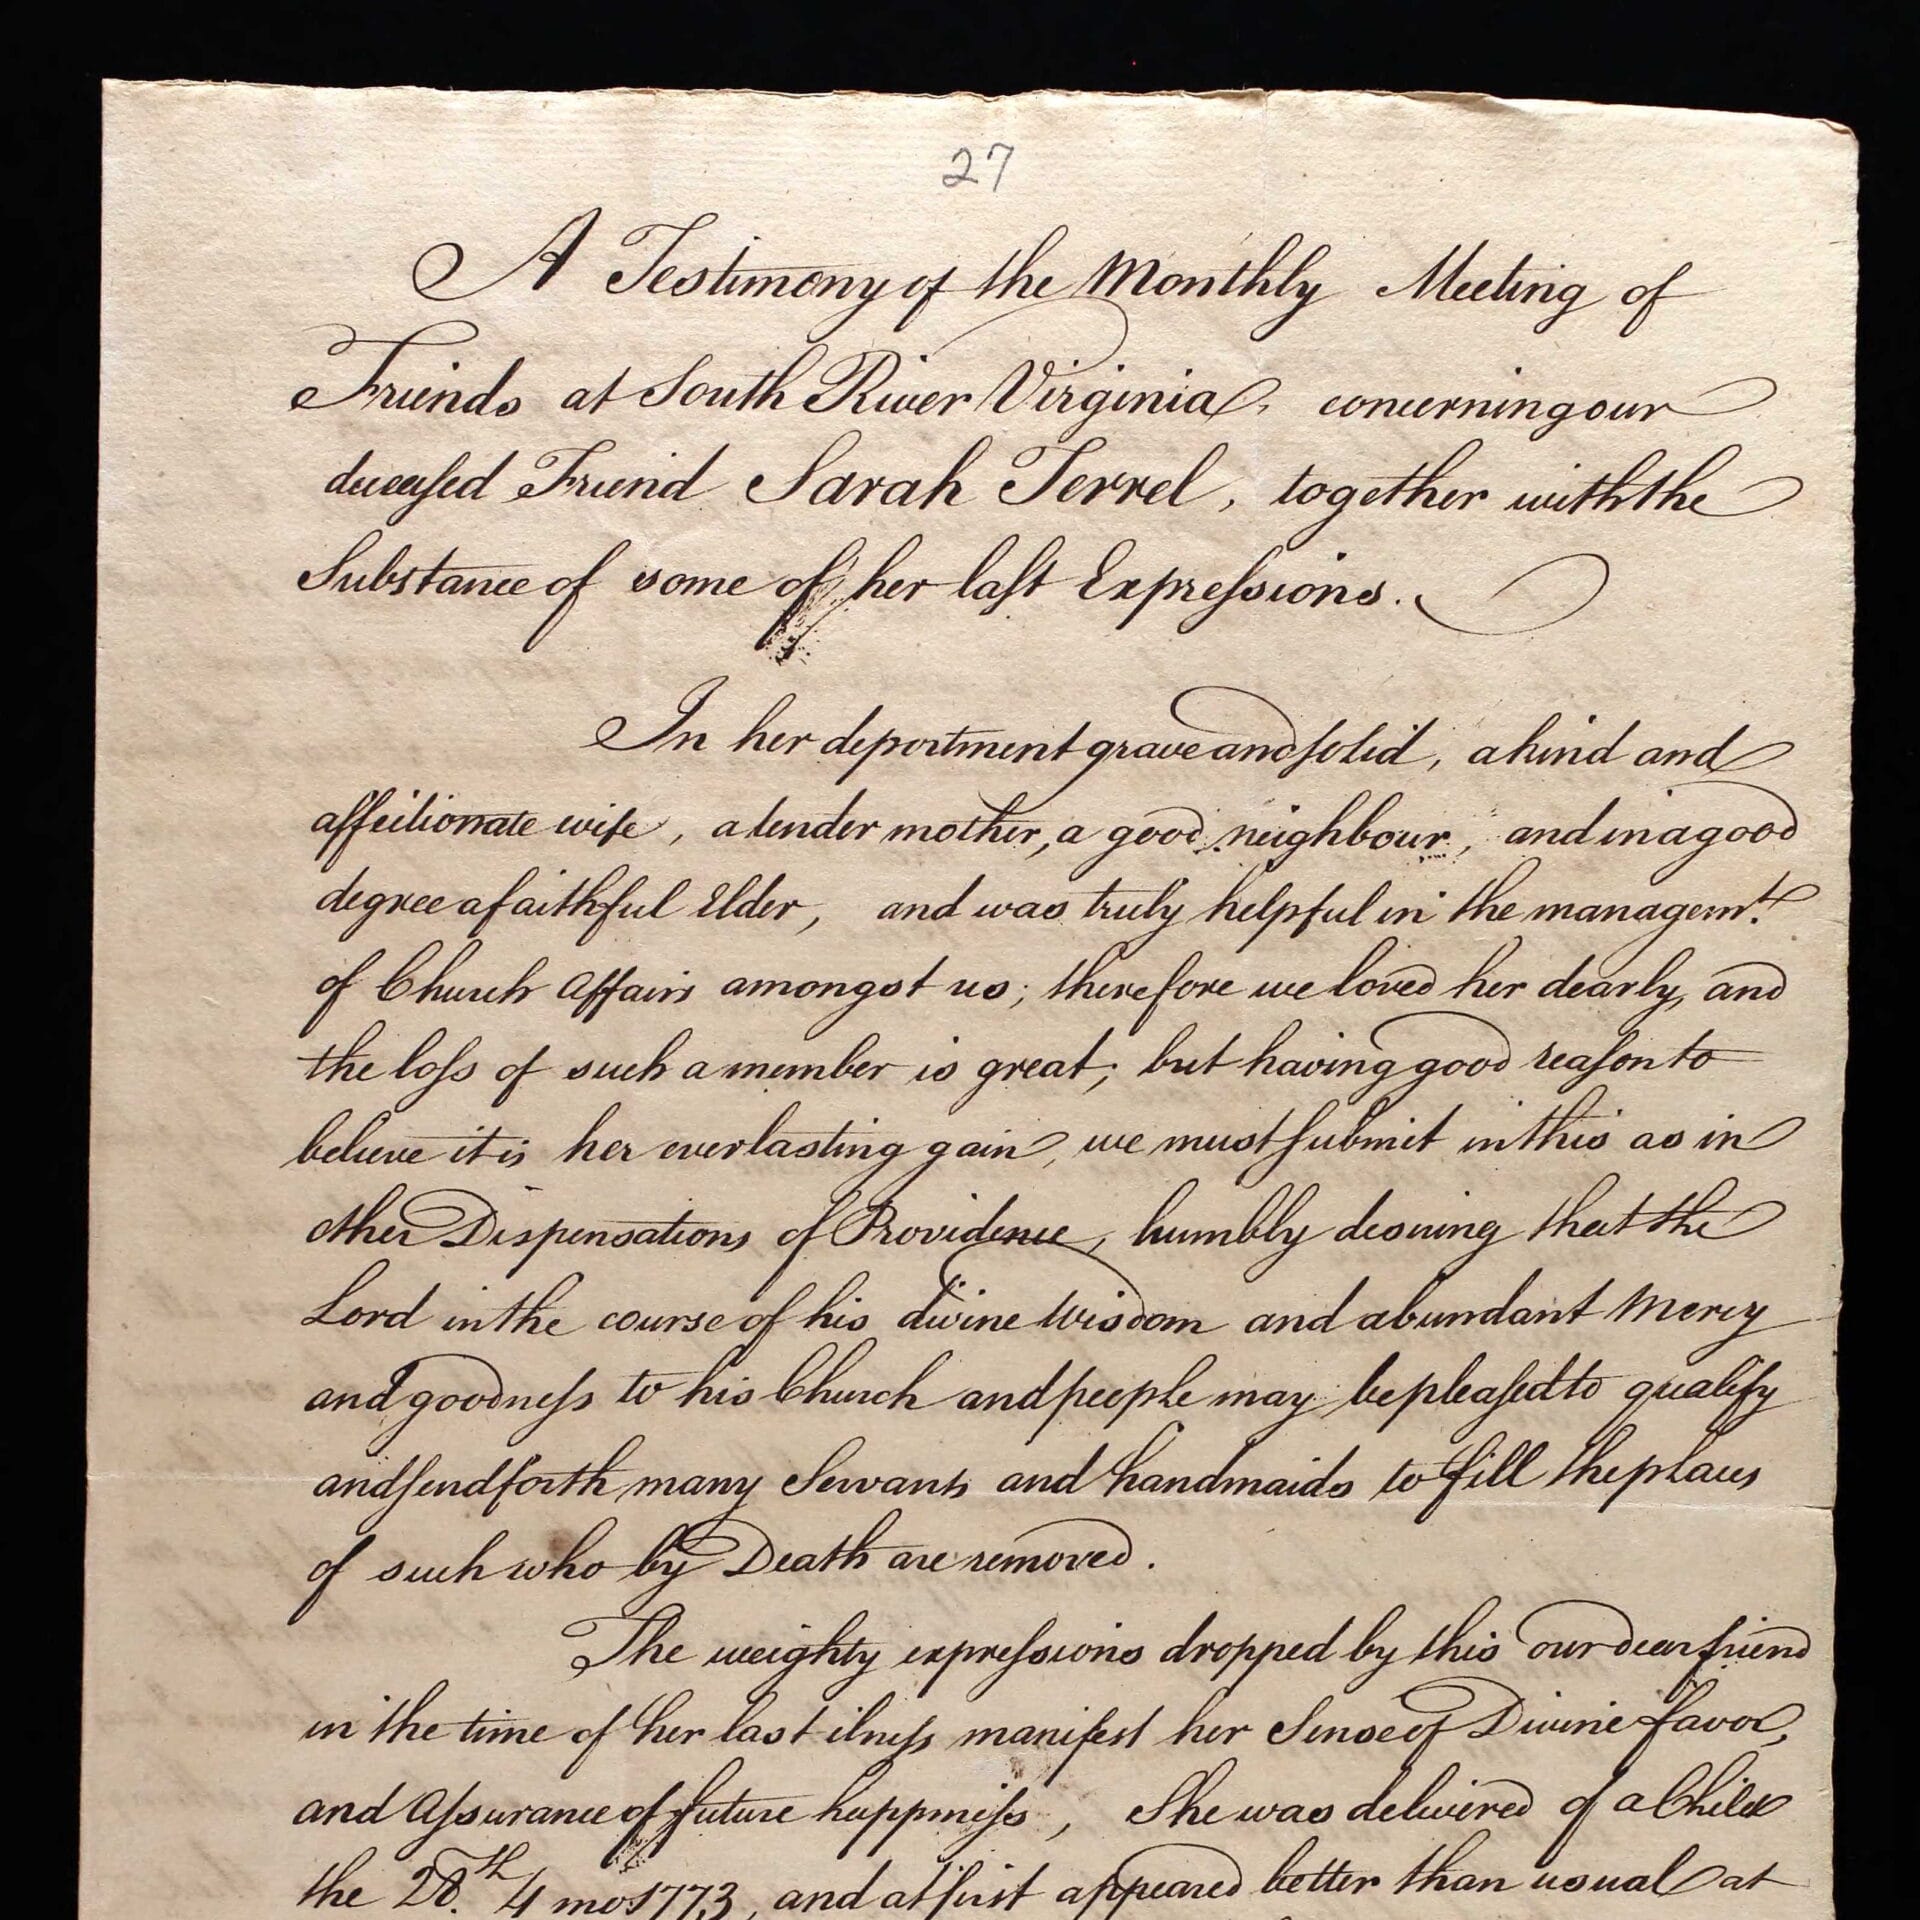 27
A Testimony of the Monthly Meeting of
Friends at South River Virginia, concerning our
deceased Friend Sarah Terrel, together with the
Substance of some of her last Expressions.
In her deportment grave and solid, a kind and
affectionate wife, a tender mother, a good neighbour, and in a good
degree a faithful Elder, and was truly helpful in the managemt.
of Church Affairs amongst us; therefore we loved her dearly, and
the loss of such a member is great; but having good reason to
believe it is her everlasting gain, we must submit in this as in
other Dispensations of Providence, humbly desiring that the
Lord in the course of his divine Wisdom and abundant Mercy
and goodness to his Church and people may be pleased to qualify
and send forth many Servants and handmaids to fill the places
of such who by Death are removed.
The weighty expressions dropped by this our dear friend
in the time of her last ilness manifest her Sense of Divine favor,
and Assurance of future happiness, She was delivered of a Child
the 28.th 4 mo 1773, and at first appeared better than usual at